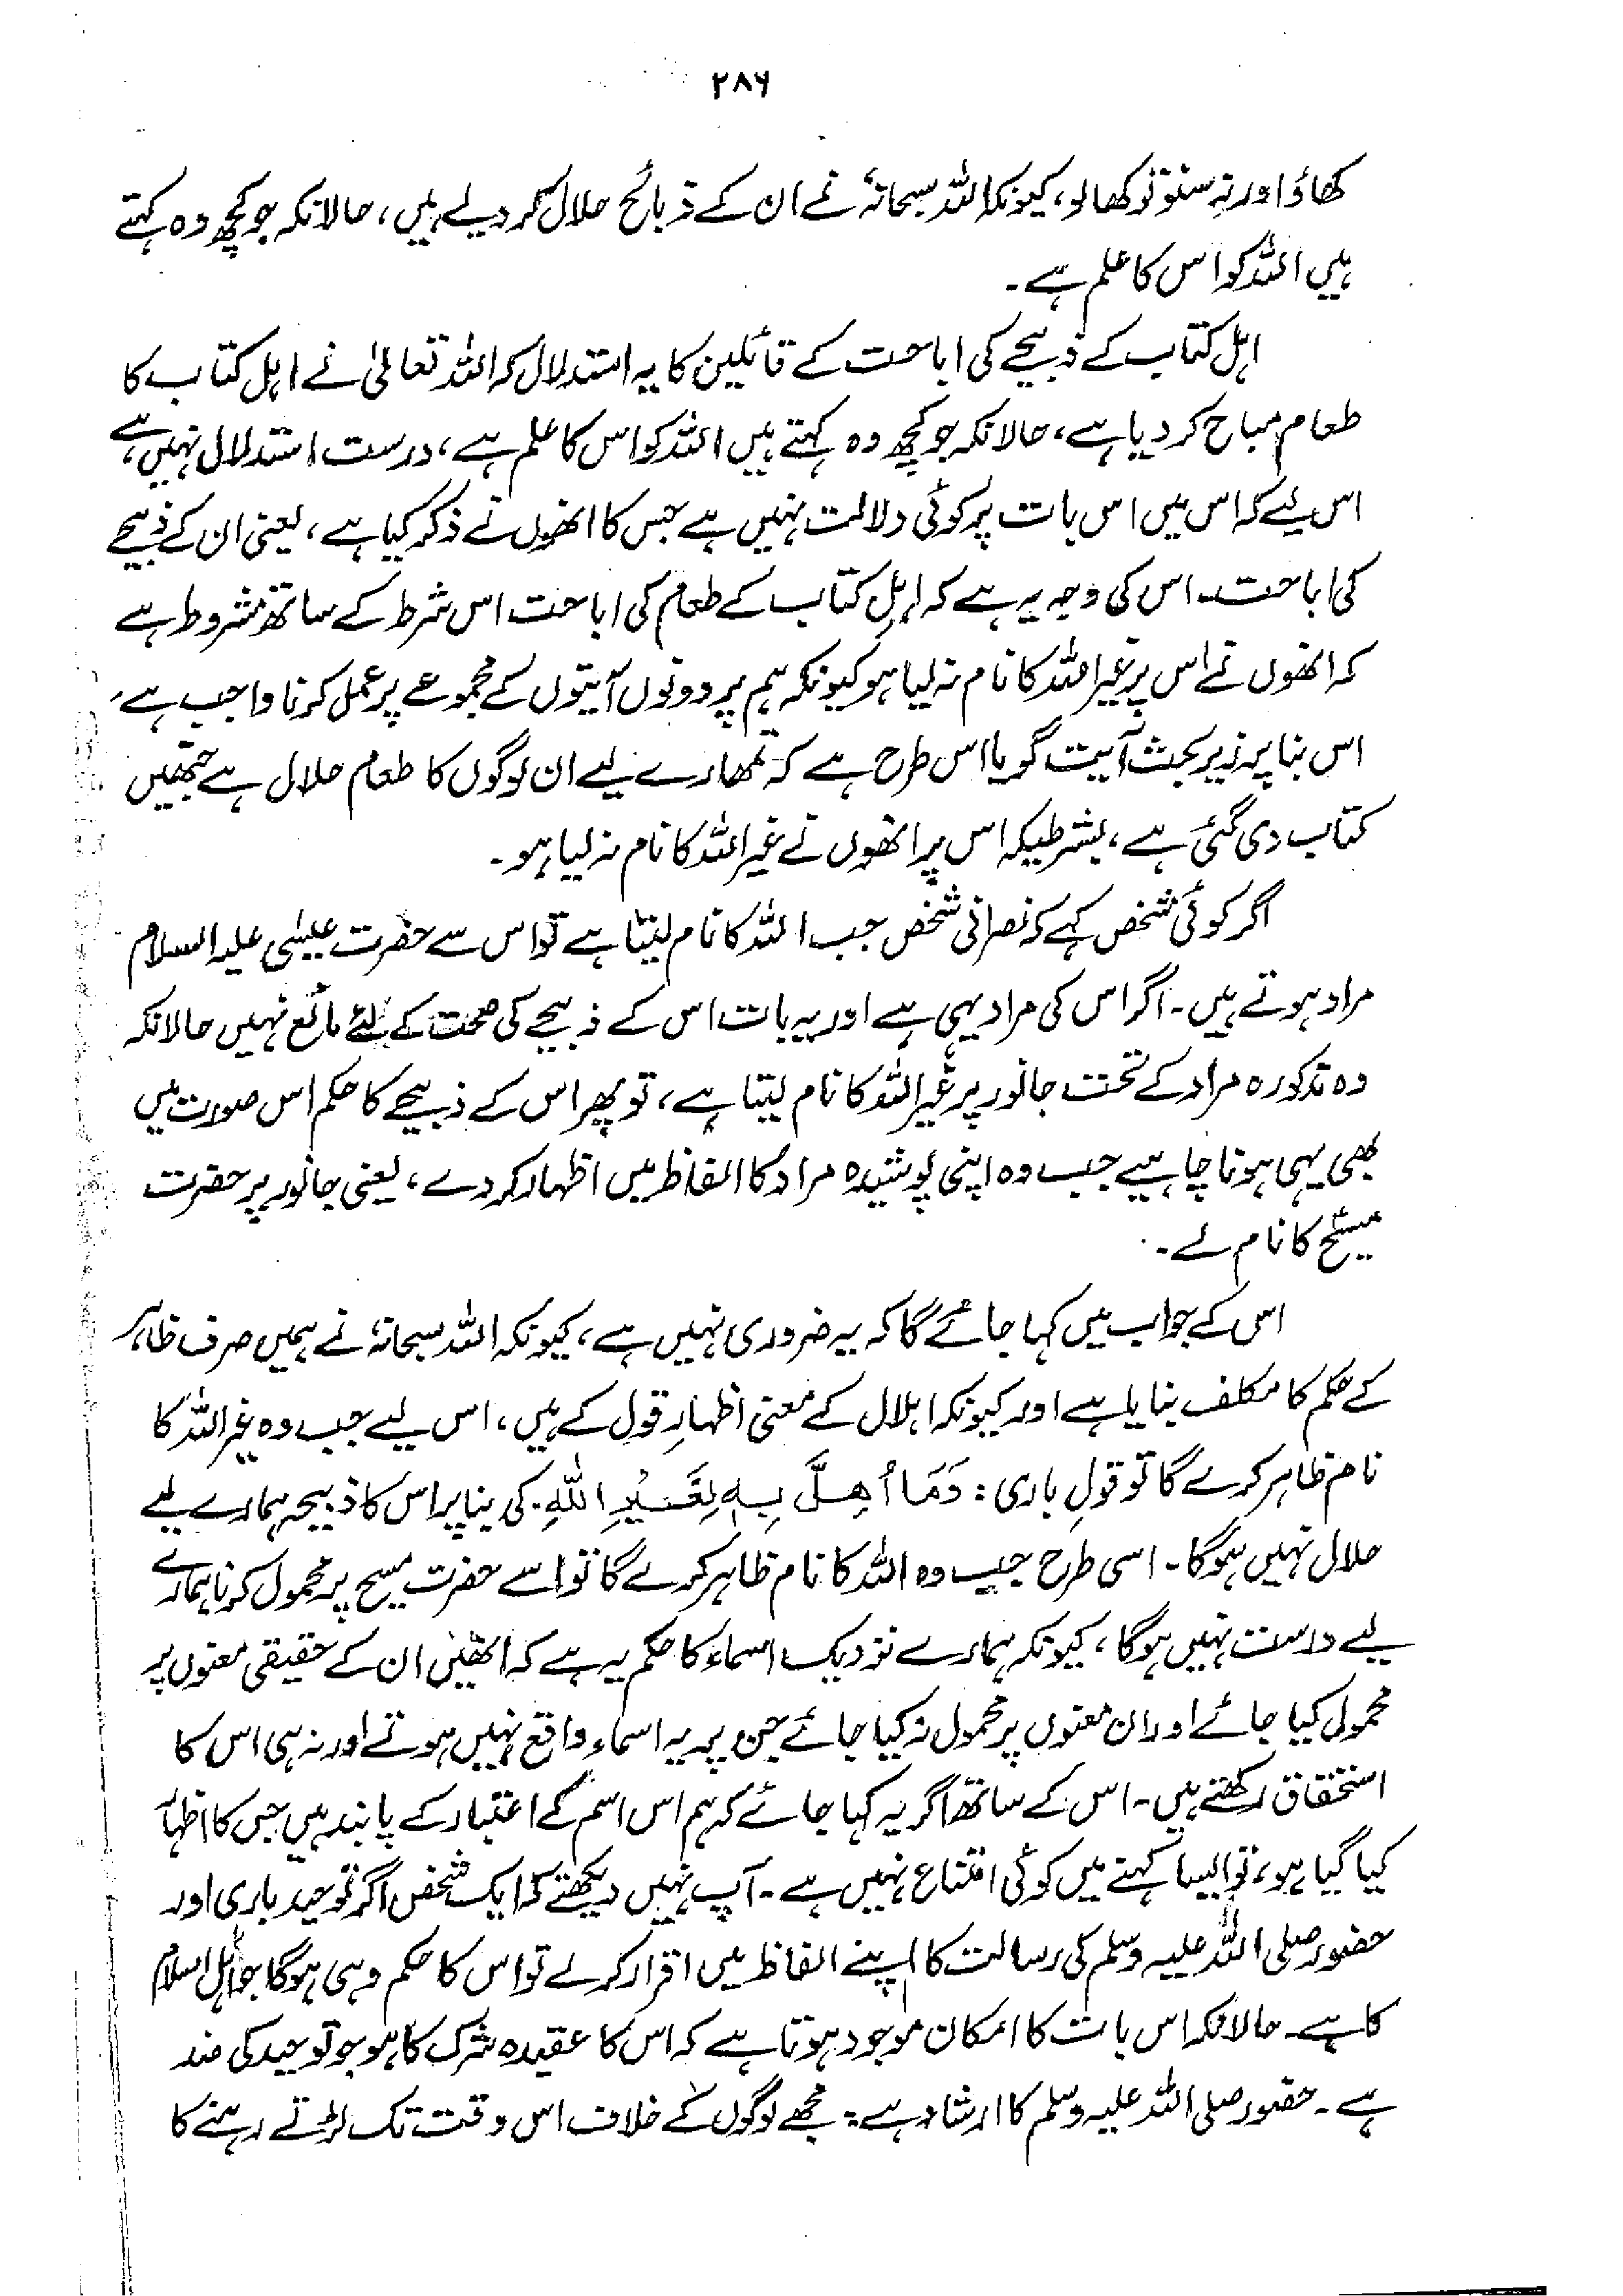 ۲۸۶
کھاؤ اور نہ سنو تو کھالو، کیونکہ اللہ سبحانہٗ نے ان کے ذبائح حلال کر دیے ہیں، حالانکہ جو کچھ وہ کہتے
ہیں اللہ کو اس کا علم ہے۔
اہل کتاب کے ذبیحے کی اباحت کے قائلین کا یہ استدلال کہ اللہ تعالیٰ نے اہل کتاب کا
طعام مباح کر دیا ہے، حالانکہ جو کچھ وہ کہتے ہیں اللہ کو اس کا علم ہے، درست استدلال نہیں ہے
اس لیے کہ اس میں اس بات پر کوئی دلالت نہیں ہے جس کا انھوں نے ذکر کیا ہے، یعنی ان کے ذبیحے
کی اباحت۔ اس کی وجہ یہ ہے کہ اہل کتاب کے طعام کی اباحت اس شرط کے ساتھ مشروط ہے
کہ انھوں نے اس پر غیراللہ کا نام نہ لیا ہو کیونکہ ہم پر دونوں آیتوں کے مجموعے پر عمل کرنا واجب ہے،
اس بنا پر زیر بحث آیت گویا اس طرح ہے کہ تمھارے لیے ان لوگوں کا طعام حلال ہے جنھیں
کتاب دی گئی ہے، بشرطیکہ اس پر انھوں نے غیر اللہ کا نام نہ لیا ہو۔
اگر کوئی شخص کہے کہ نصرانی شخص جب اللہ کا نام لیتا ہے تو اس سے حضرت عیسٰی علیہ السلام
مراد ہوتے ہیں۔ اگر اس کی مراد یہی ہے اور یہ بات اس کے ذبیحے کی صحت کے لئے مانع نہیں حالانکہ
وہ مذکورہ مراد کے تحت جانور پر غیر اللہ کا نام لیتا ہے، تو پھر اس کے ذبیحے کا حکم اس صورت میں
بھی یہی ہونا چاہیے جب وہ اپنی پوشیدہ مراد کا الفاظ میں اظہار کر دے، یعنی جانور پر حضرت
مسیحؑ کا نام لے۔
اس کے جواب میں کہا جائے گا کہ یہ ضروری نہیں ہے، کیونکہ اللہ سبحانہٗ نے ہمیں صرف ظاہر
کے حکم کا مکلف بنایا ہے اور کیونکہ اہلال کے معنی اظہارِ قول کے ہیں، اس لیے جب وہ غیر اللہ کا
نام ظاہر کرے گا تو قولِ باری: وَمَا أُهِلَّ بِهٖ لِغَيْرِ اللهِ۔ کی بنا پر اس کا ذبیحہ ہمارے لیے
حلال نہیں ہوگا۔ اسی طرح جب وہ اللہ کا نام ظاہر کرے گا تو اسے حضرت مسیح پر محمول کرنا ہمارے
لیے درست نہیں ہوگا، کیونکہ ہمارے نزدیک اسماء کا حکم یہ ہے کہ انھیں ان کے حقیقی معنوں پر
محمول کیا جائے اور ان معنوں پر محمول نہ کیا جائے جن پر یہ اسماء واقع نہیں ہوتے اور نہ ہی اس کا
استحقاق رکھتے ہیں۔ اس کے ساتھ اگر یہ کہا جائے کہ ہم اس اسم کے اعتبار کے پابند ہیں جس کا اظہار
کیا گیا ہو، تو ایسا کہنے میں کوئی امتناع نہیں ہے۔ آپ نہیں دیکھتے کہ ایک شخص اگر توحید باری اور
حضور صلی اللہ علیہ وسلم کی رسالت کا اپنے الفاظ میں اقرار کرلے تو اس کا حکم وہی ہوگا جو اہل اسلام
کا ہے۔ حالانکہ اس بات کا امکان موجود ہوتا ہے کہ اس کا عقیدہ شرک کا ہو جو توحید کی ضد
ہے۔ حضور صلی اللہ علیہ وسلم کا ارشاد ہے: مجھے لوگوں کے خلاف اس وقت تک لڑتے رہنے کا